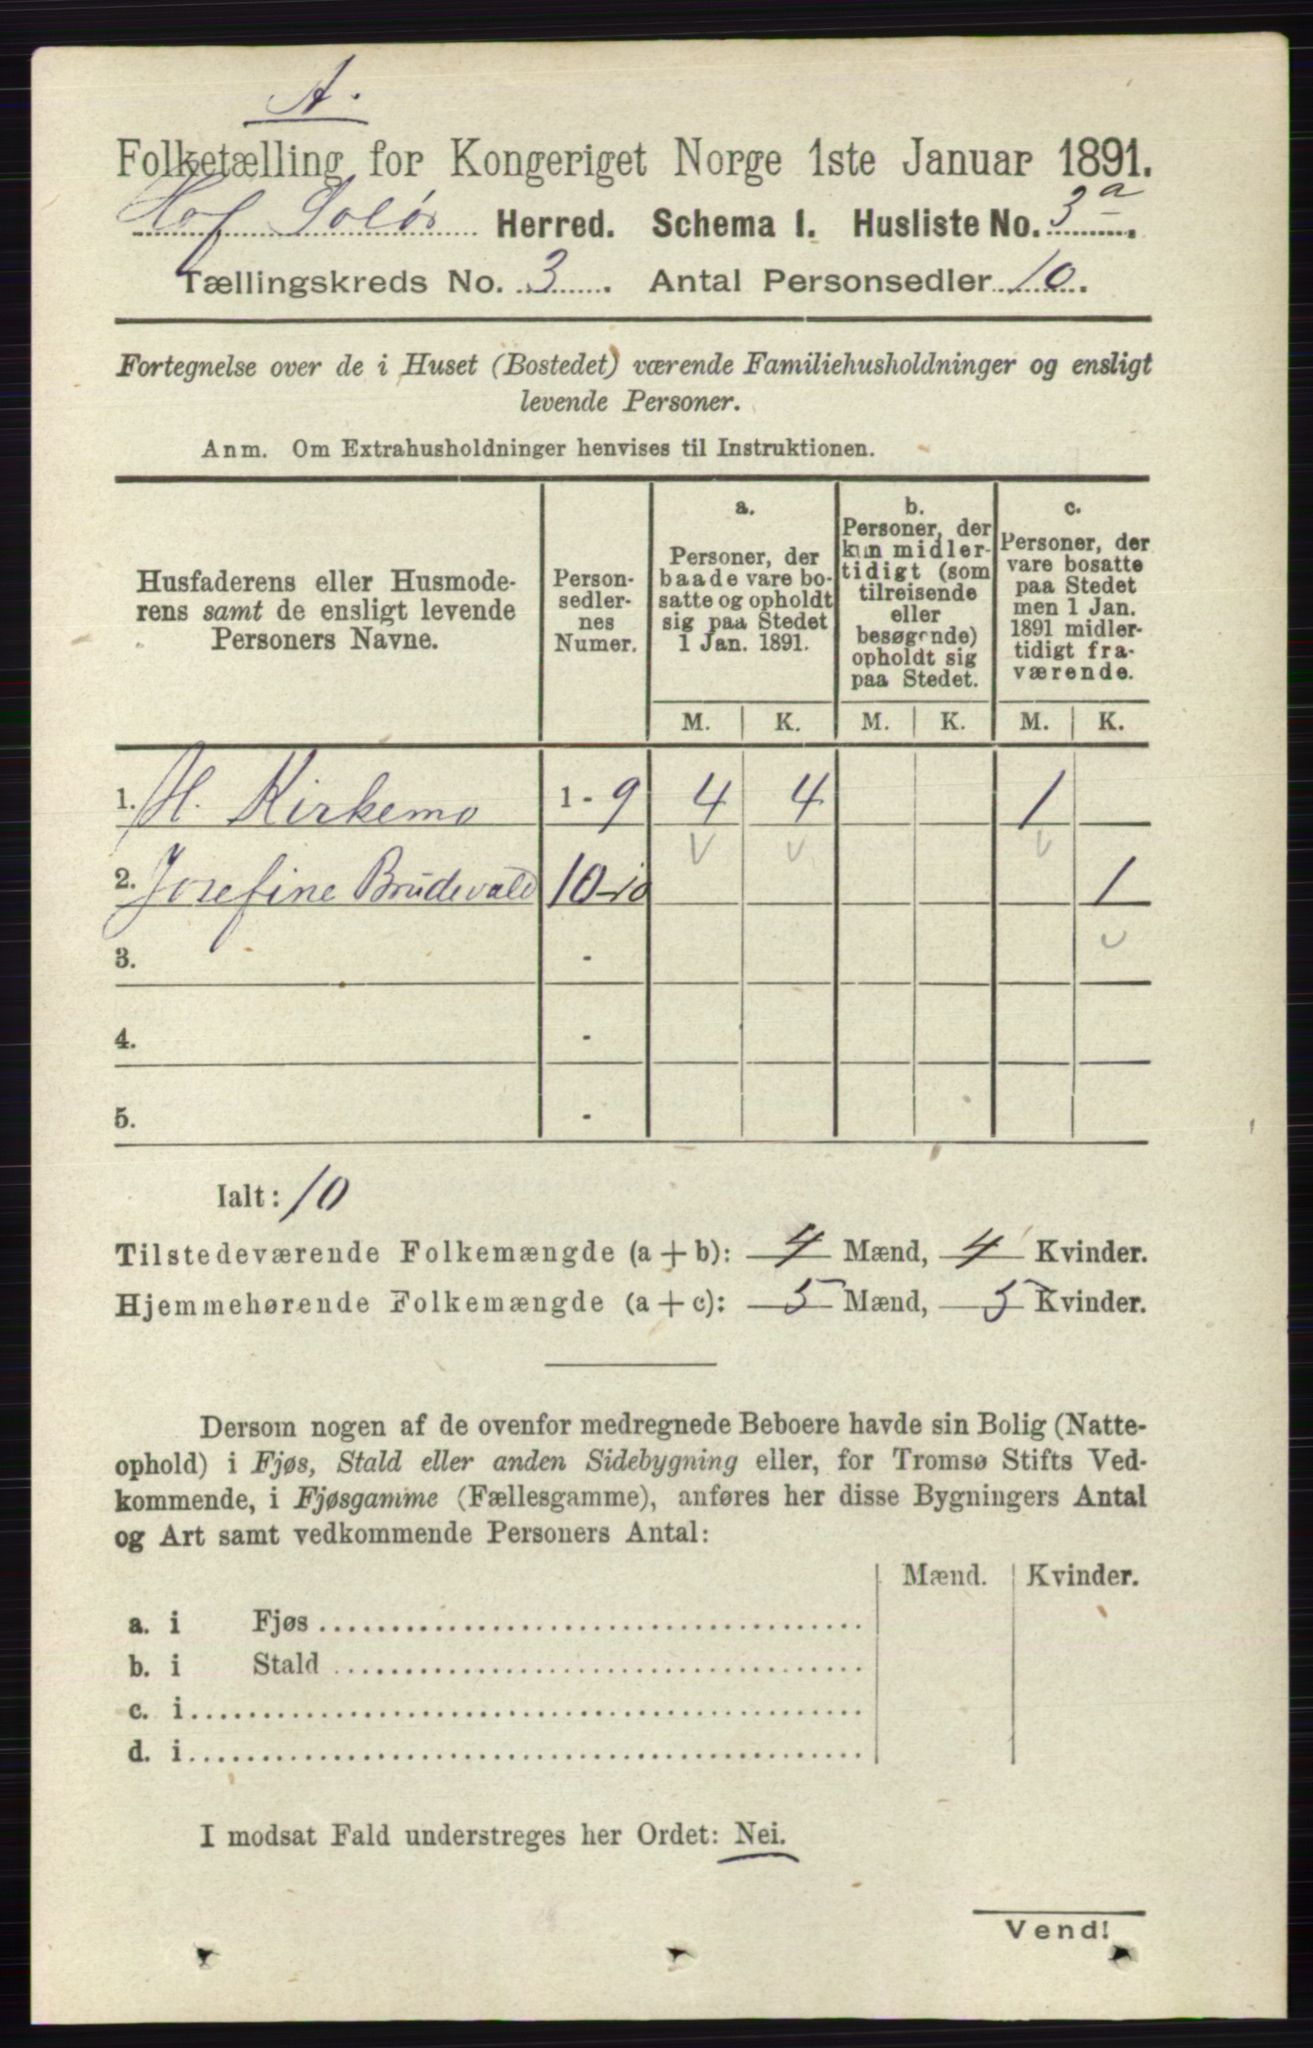 A.
Folketælling for Kongeriget Norge 1ste Januar 1891.
Hof Solør Herred. Schema I. Husliste No. 3a.
Tællingskreds No. 3. Antal Personsedler 10.
Fortegnelse over de i Huset (Bostedet) værende Familiehusholdninger og ensligt
levende Personer.
Anm. Om Extrahusholdninger henvises til Instruktionen.
Husfaderens eller Husmode-
rens samt de ensligt levende
Personers Navne.
Person-
sedler-
nes
Numer.
a.
Personer, der
baade vare bo-
satte og opholdt
sig paa Stedet
1 Jan. 1891.
b.
Personer, der
kun midler-
tidigt (som
tilreisende
eller
besøgende)
opholdt sig
paa Stedet.
c.
Personer, der
vare bosatte
paa Stedet
men 1 Jan.
1891 midler-
tidigt fra-
værende.
M. K. M. K. M. K.
1. H. Kirkemo 1 - 9 4 4 1
2. Josefine Brudevold 10-10 1
3. -
4. -
5. -
Ialt: 10
Tilstedeværende Folkemængde (a + b): 4 Mænd, 4 Kvinder.
Hjemmehørende Folkemængde (a + c): 5 Mænd, 5 Kvinder.
Dersom nogen af de ovenfor medregnede Beboere havde sin Bolig (Natte-
ophold) i Fjøs, Stald eller anden Sidebygning eller, for Tromsø Stifts Ved-
kommende, i Fjøsgamme (Fællesgamme), anføres her disse Bygningers Antal
og Art samt vedkommende Personers Antal:
Mænd. Kvinder.
a. i Fjøs
b. i Stald
c. i
d. i
I modsat Fald understreges her Ordet: Nei.
Vend!